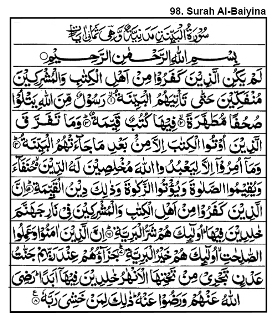 98. Surah Al-Baiyina
سُوْرَةُ الْبَيِّنَةِ مَدَنِيَّةٌ وَّهِيَ ثَمَانِيْ اٰيَاتٍ
بِسْمِ اللّٰهِ الرَّحْمٰنِ الرَّحِيْمِ
لَمْ يَكُنِ الَّذِيْنَ كَفَرُوْا مِنْ اَهْلِ الْكِتٰبِ وَالْمُشْرِكِيْنَ
مُنْفَكِّيْنَ حَتّٰى تَاْتِيَهُمُ الْبَيِّنَةُ ۝ رَسُوْلٌ مِّنَ اللّٰهِ يَتْلُوْا
صُحُفًا مُّطَهَّرَةً ۝ فِيْهَا كُتُبٌ قَيِّمَةٌ ۝ وَمَا تَفَرَّقَ
الَّذِيْنَ اُوْتُوا الْكِتٰبَ اِلَّا مِنْۢ بَعْدِ مَا جَآءَتْهُمُ الْبَيِّنَةُ ۝
وَمَآ اُمِرُوْٓا اِلَّا لِيَعْبُدُوا اللّٰهَ مُخْلِصِيْنَ لَهُ الدِّيْنَ حُنَفَآءَ
وَيُقِيْمُوا الصَّلٰوةَ وَيُؤْتُوا الزَّكٰوةَ وَذٰلِكَ دِيْنُ الْقَيِّمَةِ ۝ اِنَّ
الَّذِيْنَ كَفَرُوْا مِنْ اَهْلِ الْكِتٰبِ وَالْمُشْرِكِيْنَ فِيْ نَارِ جَهَنَّمَ
خٰلِدِيْنَ فِيْهَا اُولٰٓئِكَ هُمْ شَرُّ الْبَرِيَّةِ ۝ اِنَّ الَّذِيْنَ اٰمَنُوْا وَعَمِلُوا
الصّٰلِحٰتِ اُولٰٓئِكَ هُمْ خَيْرُ الْبَرِيَّةِ ۝ جَزَآؤُهُمْ عِنْدَ رَبِّهِمْ جَنّٰتُ
عَدْنٍ تَجْرِيْ مِنْ تَحْتِهَا الْاَنْهٰرُ خٰلِدِيْنَ فِيْهَآ اَبَدًا رَضِيَ
اللّٰهُ عَنْهُمْ وَرَضُوْا عَنْهُ ذٰلِكَ لِمَنْ خَشِيَ رَبَّهُ ۝